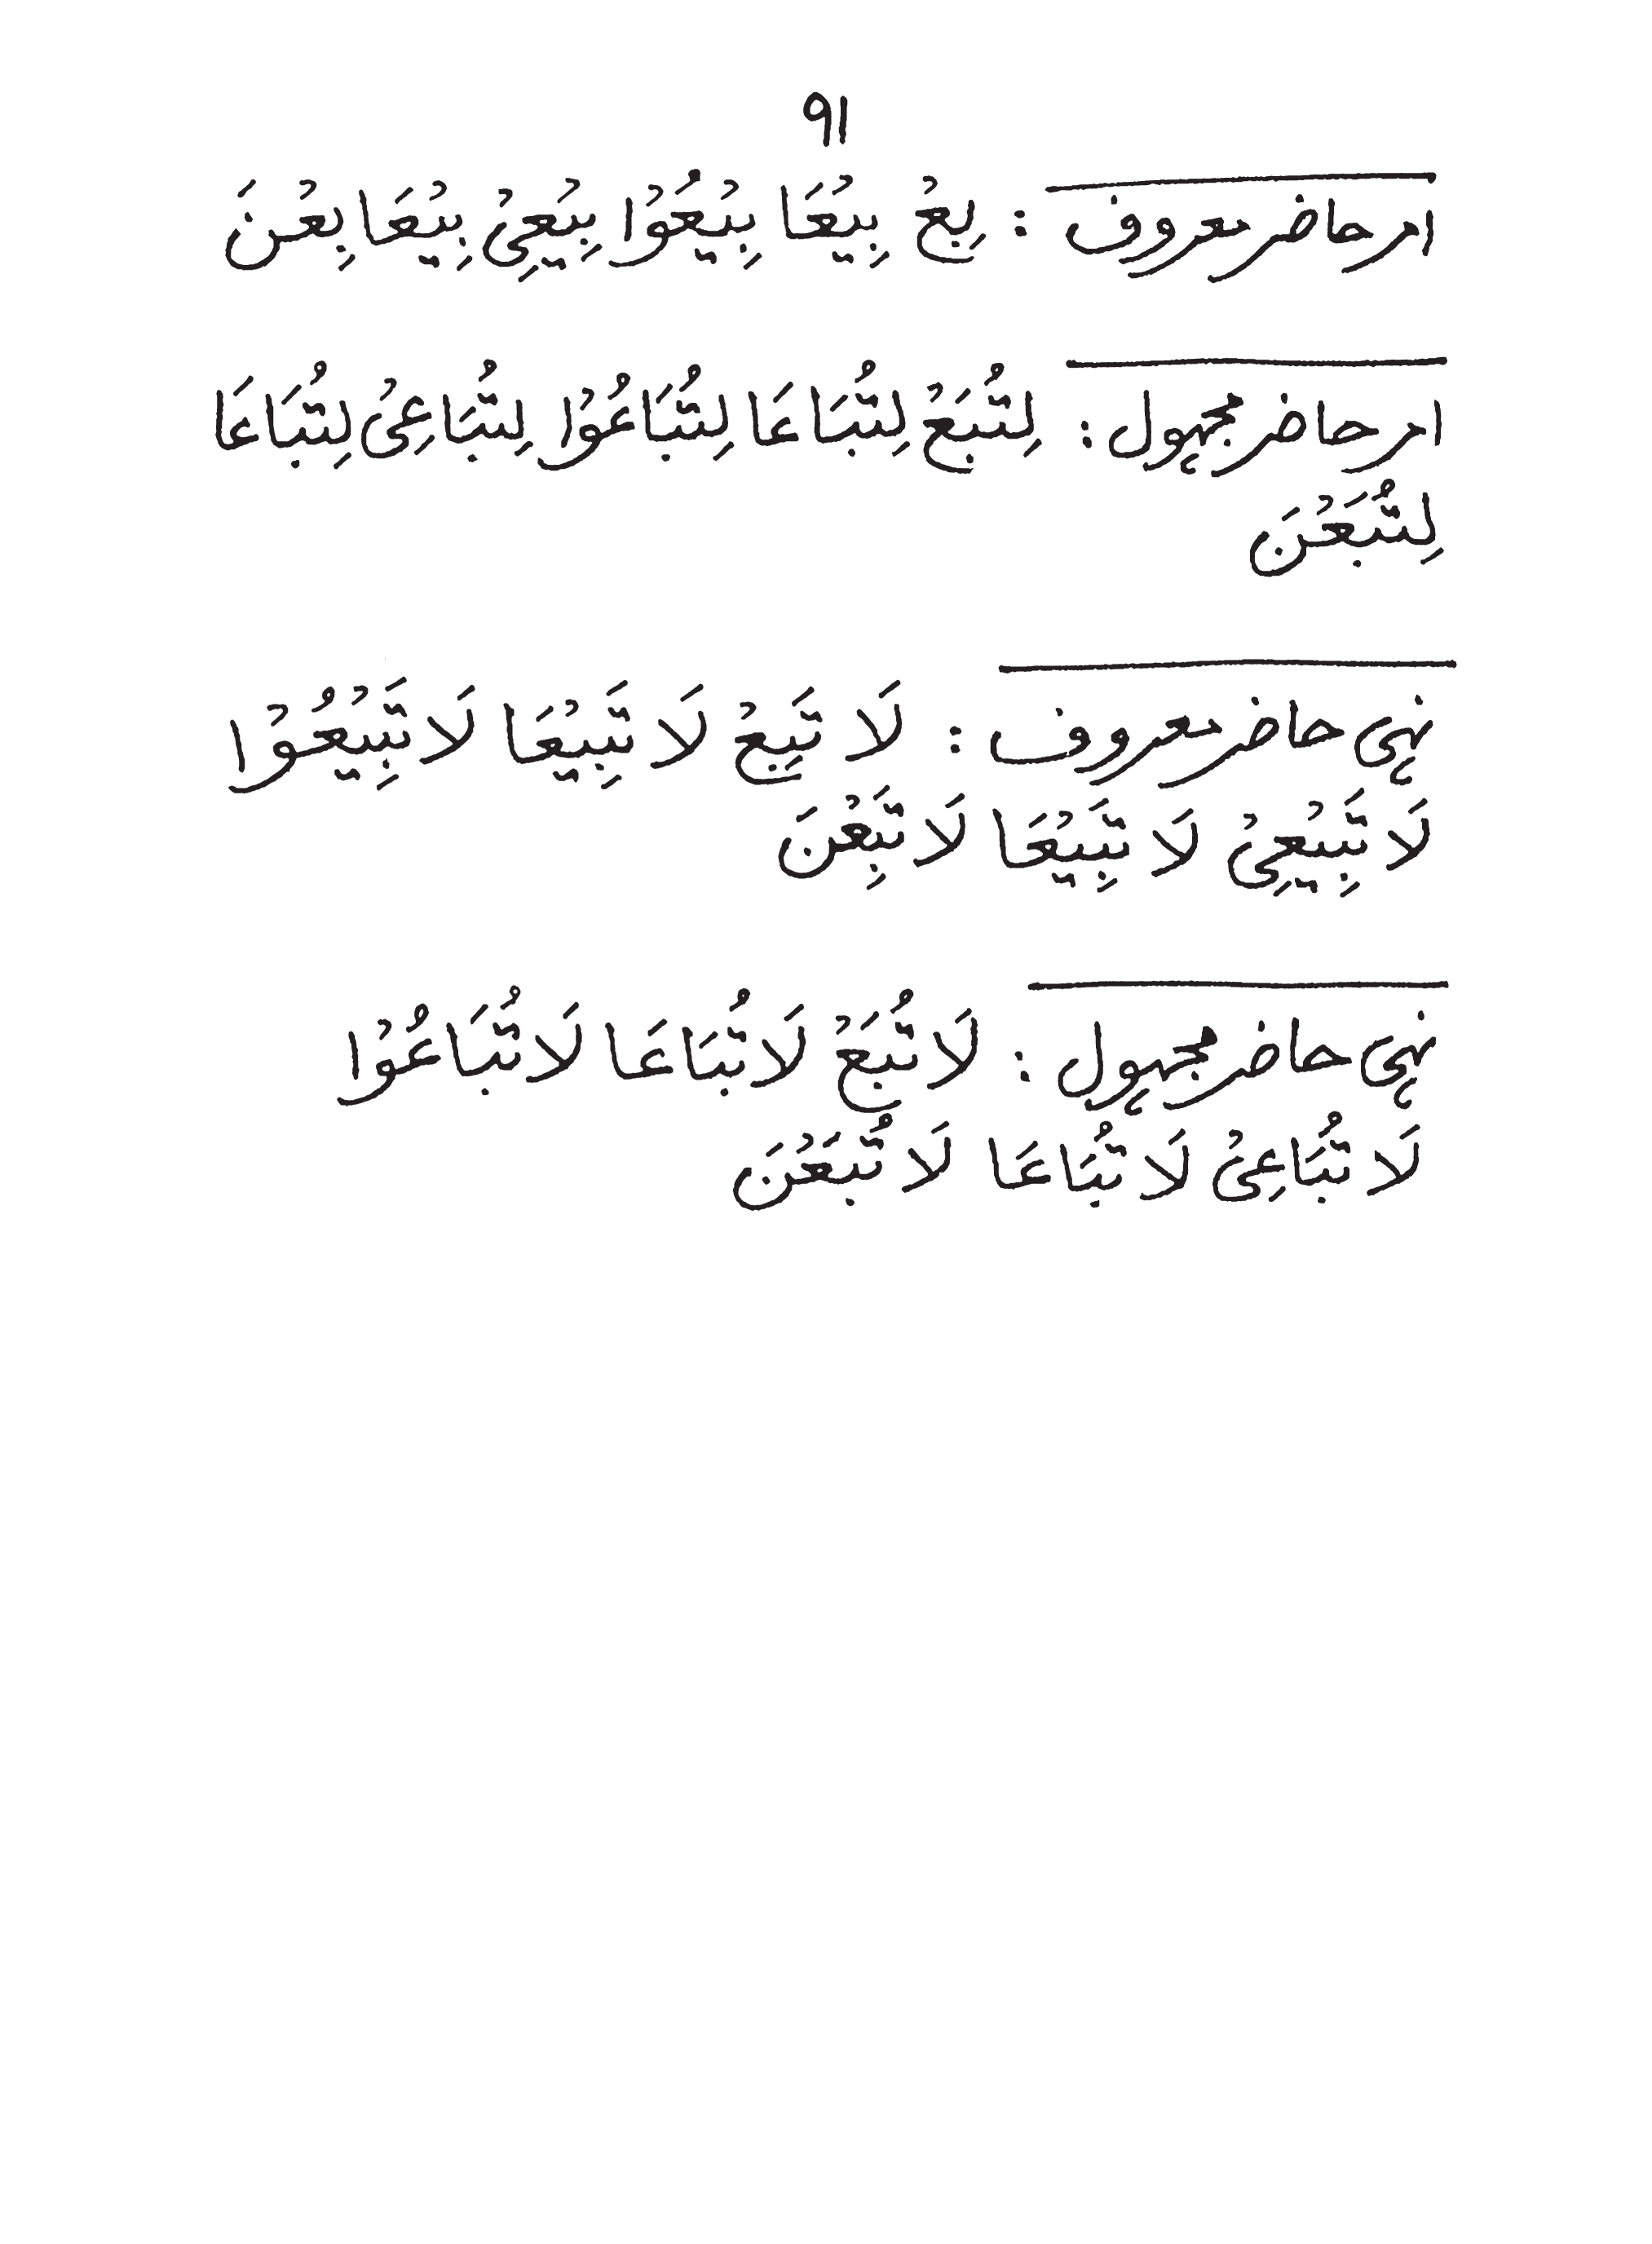 ۹۱
امر حاضر معروف : بِعْ بِيْعَا بِيْعُوْا بِيْعِيْ بِيْعَا بِعْنَ
امر حاضر مجہول : لِتُبَعْ لِتُبَاعَا لِتُبَاعُوْا لِتُبَاعِيْ لِتُبَاعَا
لِتُبَعْنَ
نہی حاضر معروف : لَا تَبِعْ لَا تَبِيْعَا لَا تَبِيْعُوْا
لَا تَبِيْعِيْ لَا تَبِيْعَا لَا تَبِعْنَ
نہی حاضر مجہول : لَا تُبَعْ لَا تُبَاعَا لَا تُبَاعُوْا
لَا تُبَاعِيْ لَا تُبَاعَا لَا تُبَعْنَ